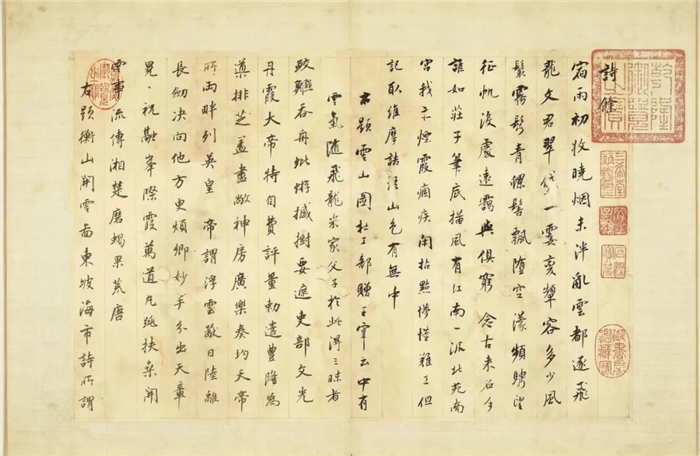 乾隆御覽之寶
詩餘
宿雨初收曉烟未泮亂雲都逐飛
龍文君翠黛一霎變顰容多少風
鬟霧鬢青螺髻飄墮空濛頻騁望
征帆沒處遠靄與俱窮 念古來今
誰如莊子筆底描風有江南一派北苑南
宮我亦煙霞痼疾閑拈點慘憺難工但
記取維摩詰語山色有無中
右題雲山圖杜工部贈王宰云中有
雲氣隨飛龍米家父子於此得三昧者
鮫鱷吞舟蚍蜉撼樹要遮吏部文光
丹霞大帝特自費評量勅遣豐隆為
導排芝蓋盡敞神房廣樂奏均天帝
所兩畔列英皇 帝謂浮雲蔽日陸離
長劒決向他方更煩卿妙手分出天章
晃〻祝融峯際霞萬道丸跳扶桑開
雲事流傳湘楚磨蝎果荒唐
右題衡山開雲啚東坡海市詩所謂